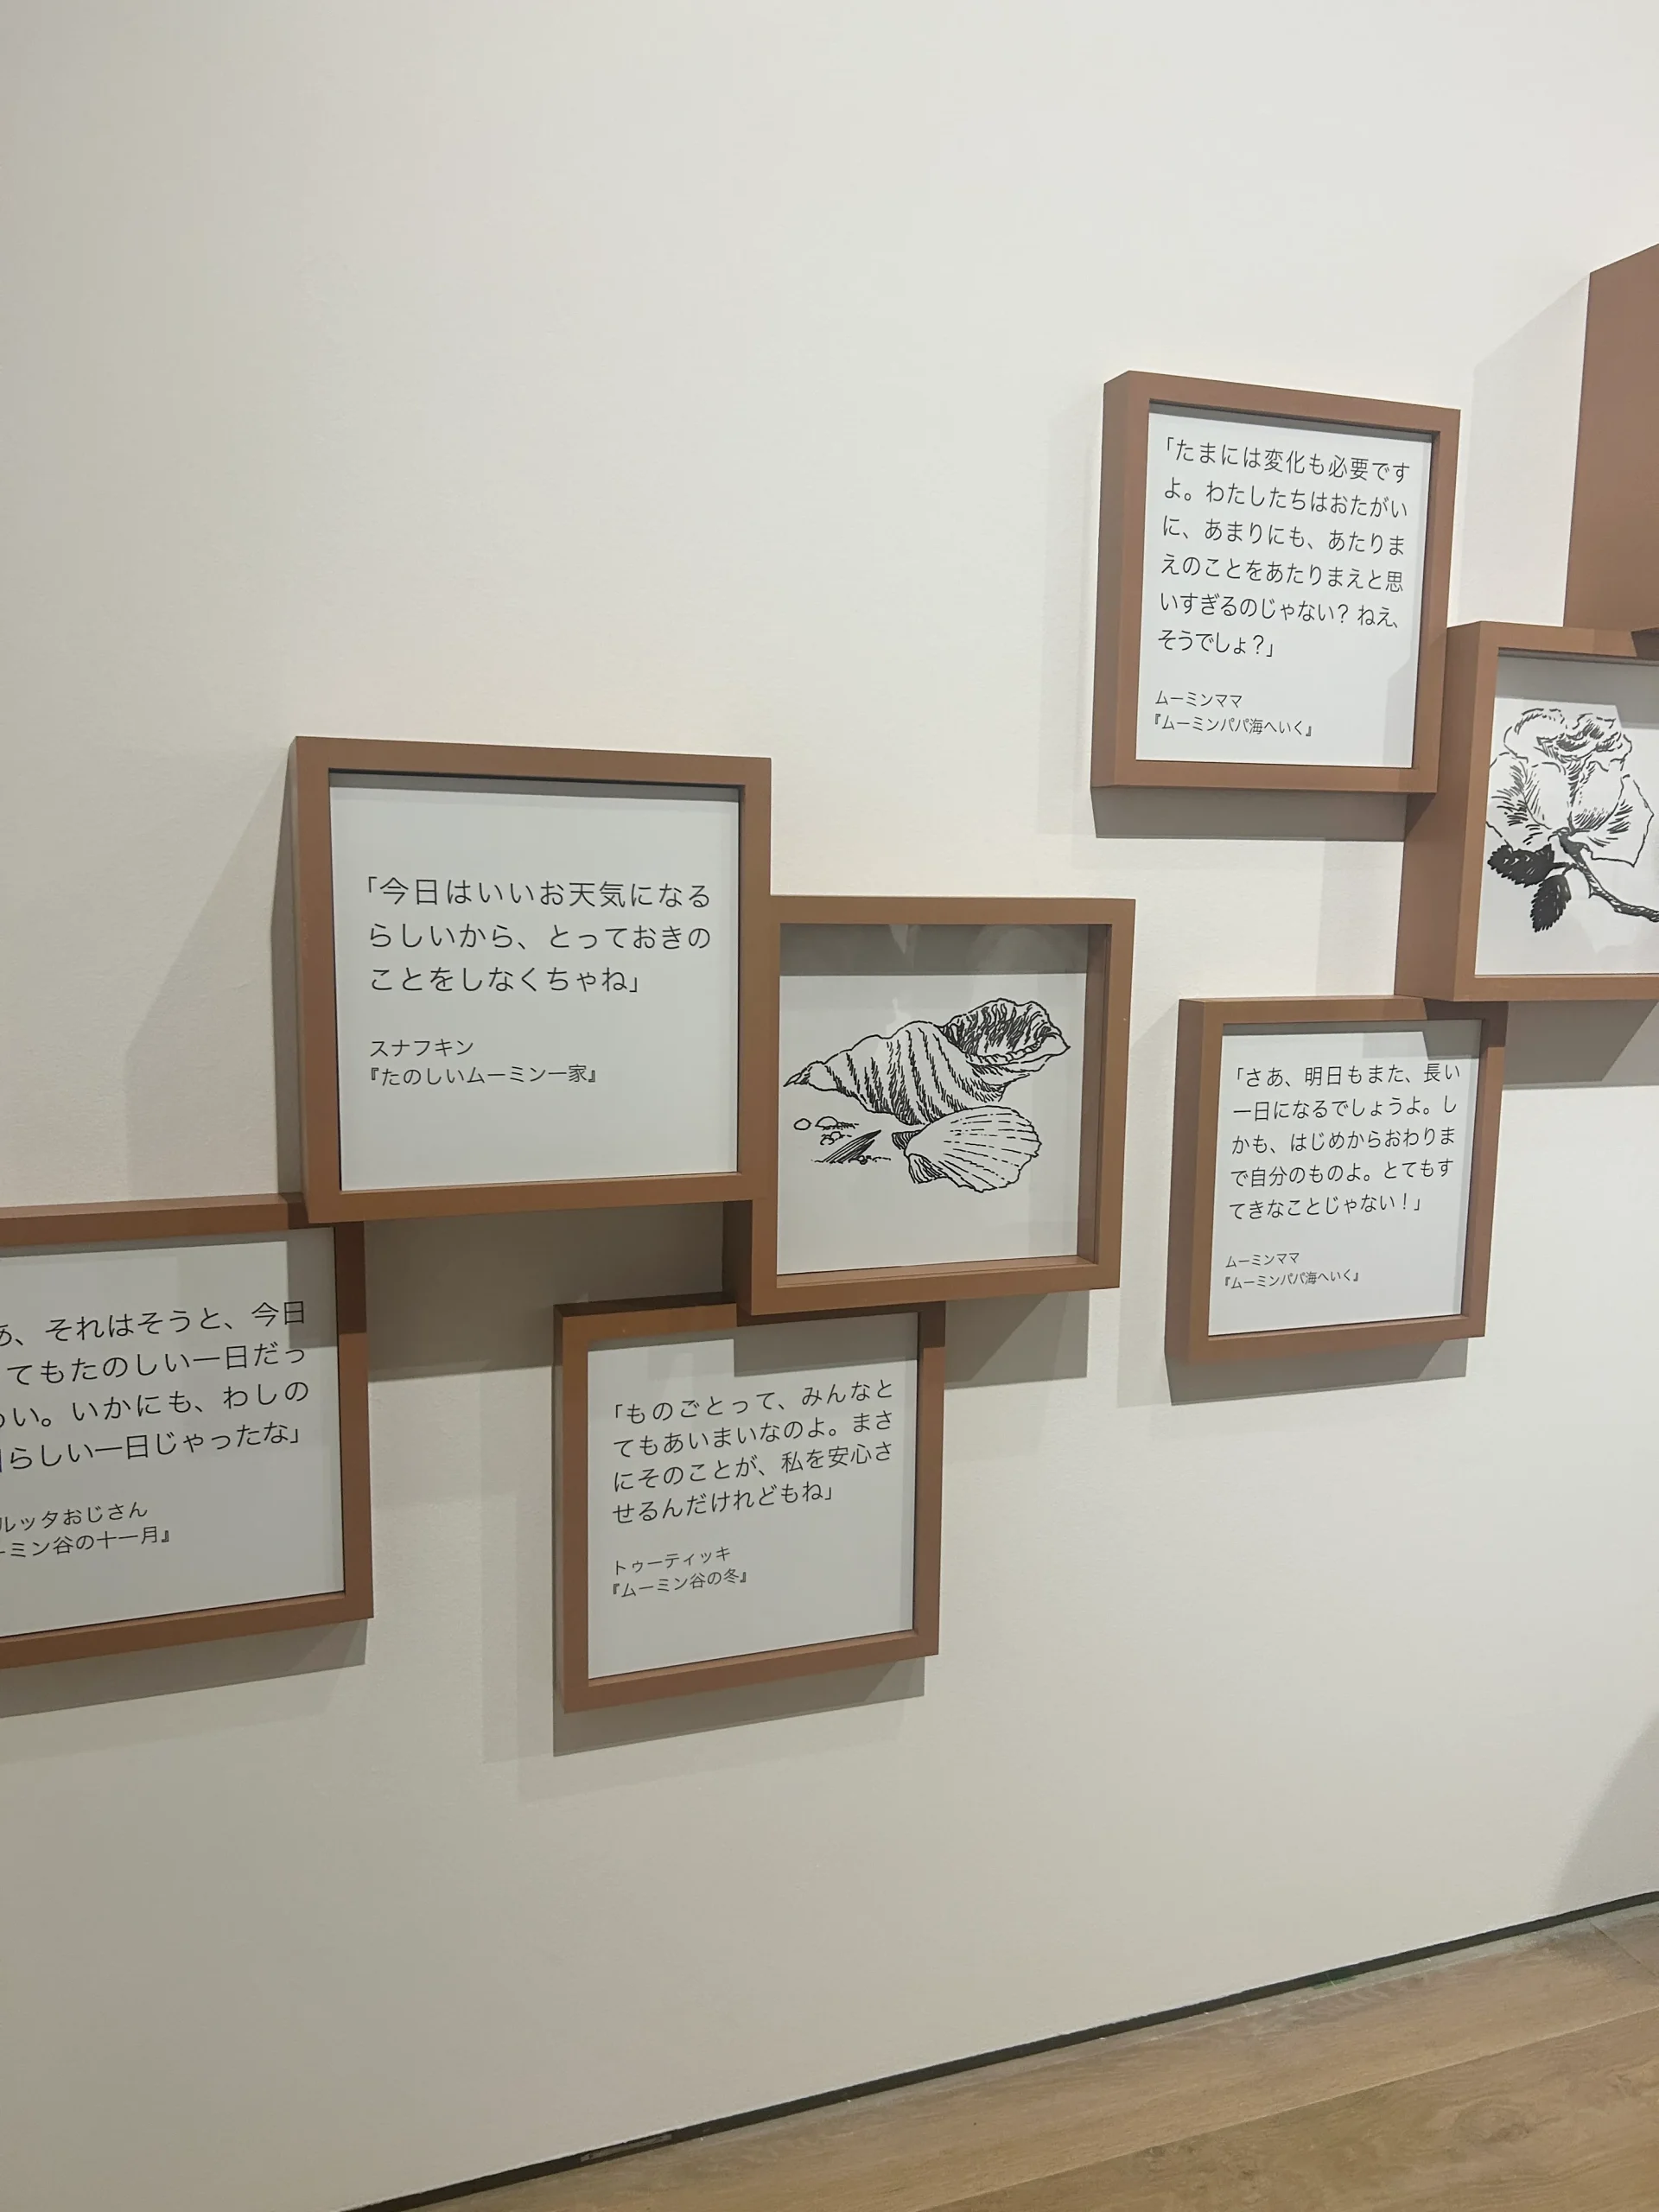 「たまには変化も必要です
よ。わたしたちはおたがい
に、あまりにも、あたりま
えのことをあたりまえと思
いすぎるのじゃない? ねえ、
そうでしょ?」
ムーミンママ
『ムーミンパパ海へいく』
「今日はいいお天気になる
らしいから、とっておきの
ことをしなくちゃね」
スナフキン
『たのしいムーミン一家』
「さあ、明日もまた、長い
一日になるでしょうよ。し
かも、はじめからおわりま
で自分のものよ。とてもす
てきなことじゃない!」
ムーミンママ
『ムーミンパパ海へいく』
あ、それはそうと、今日
てもたのしい一日だっ
い。いかにも、わしの
らしい一日じゃったな」
ルッタおじさん
ーミン谷の十一月』
「ものごとって、みんなと
てもあいまいなのよ。まさ
にそのことが、私を安心さ
せるんだけれどもね」
トゥーティッキ
『ムーミン谷の冬』